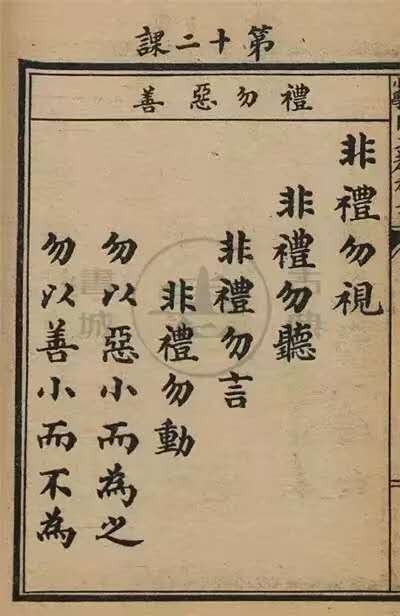 第十二課
禮勿惡善
非禮勿視
非禮勿聽
非禮勿言
非禮勿動
勿以惡小而為之
勿以善小而不為
書城